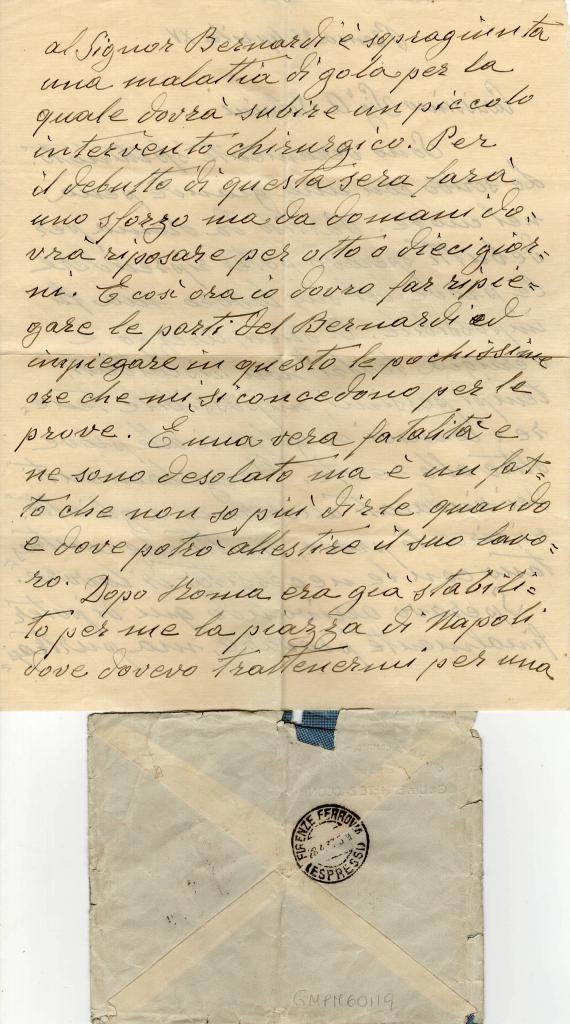 al Signor Bernardi è sopragiunta
una malattia di gola per la
quale dovrà subire un piccolo
intervento chirurgico. Per
il debutto di questa sera farà
uno sforzo ma da domani do-
vrà riposare per otto o dieci gior-
ni. E così ora io dovrò far ripie-
gare le parti del Bernardi ed
impiegare in questo le pochissime
ore che mi si concedono per le
prove. È una vera fatalità e
ne sono desolato ma è un fat-
to che non so più dirle quando
e dove potrò allestire il suo lavo-
ro. Dopo Roma era già stabili-
to per me la piazza di Napoli
dove dovevo trattenermi per una
FIRENZE FERROVIA
(ESPRESSI)
GMPM60119